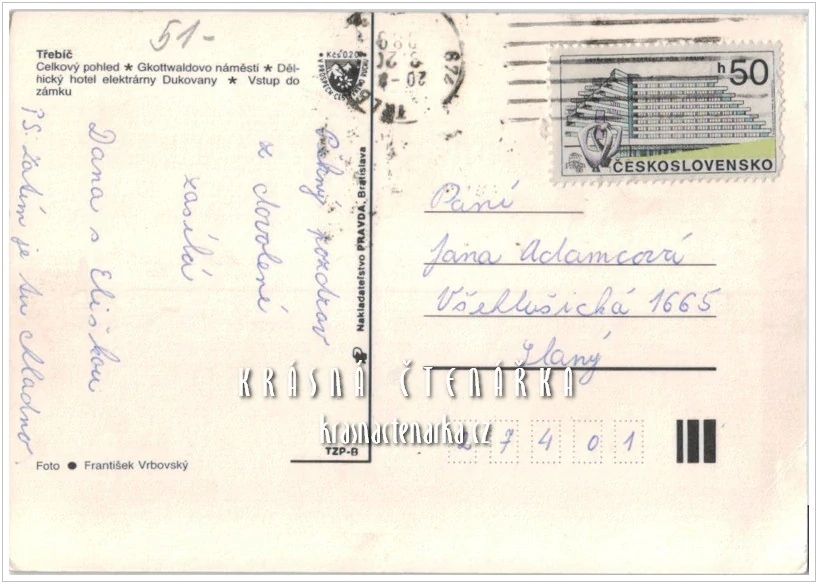 51-
Třebíč
Celkový pohled ★ Gkottwaldovo náměstí ★ Děl-
ňický hotel elektrárny Dukovany ★ Vstup do
zámku
Kčs 0,20
h 50
ČESKOSLOVENSKO
Pěkný pozdrav
z dovolené
zasílá
Dana s Eliškou
P.S. Zatím je tu chladno.
Nakladateľstvo PRAVDA, Bratislava
Paní
Jana Adamcová
Všehlušická 1665
Slaný
KRÁSNÁ ČTENÁŘKA
krasnactenarka.cz
27401
TZP-B
Foto ● František Vrbovský